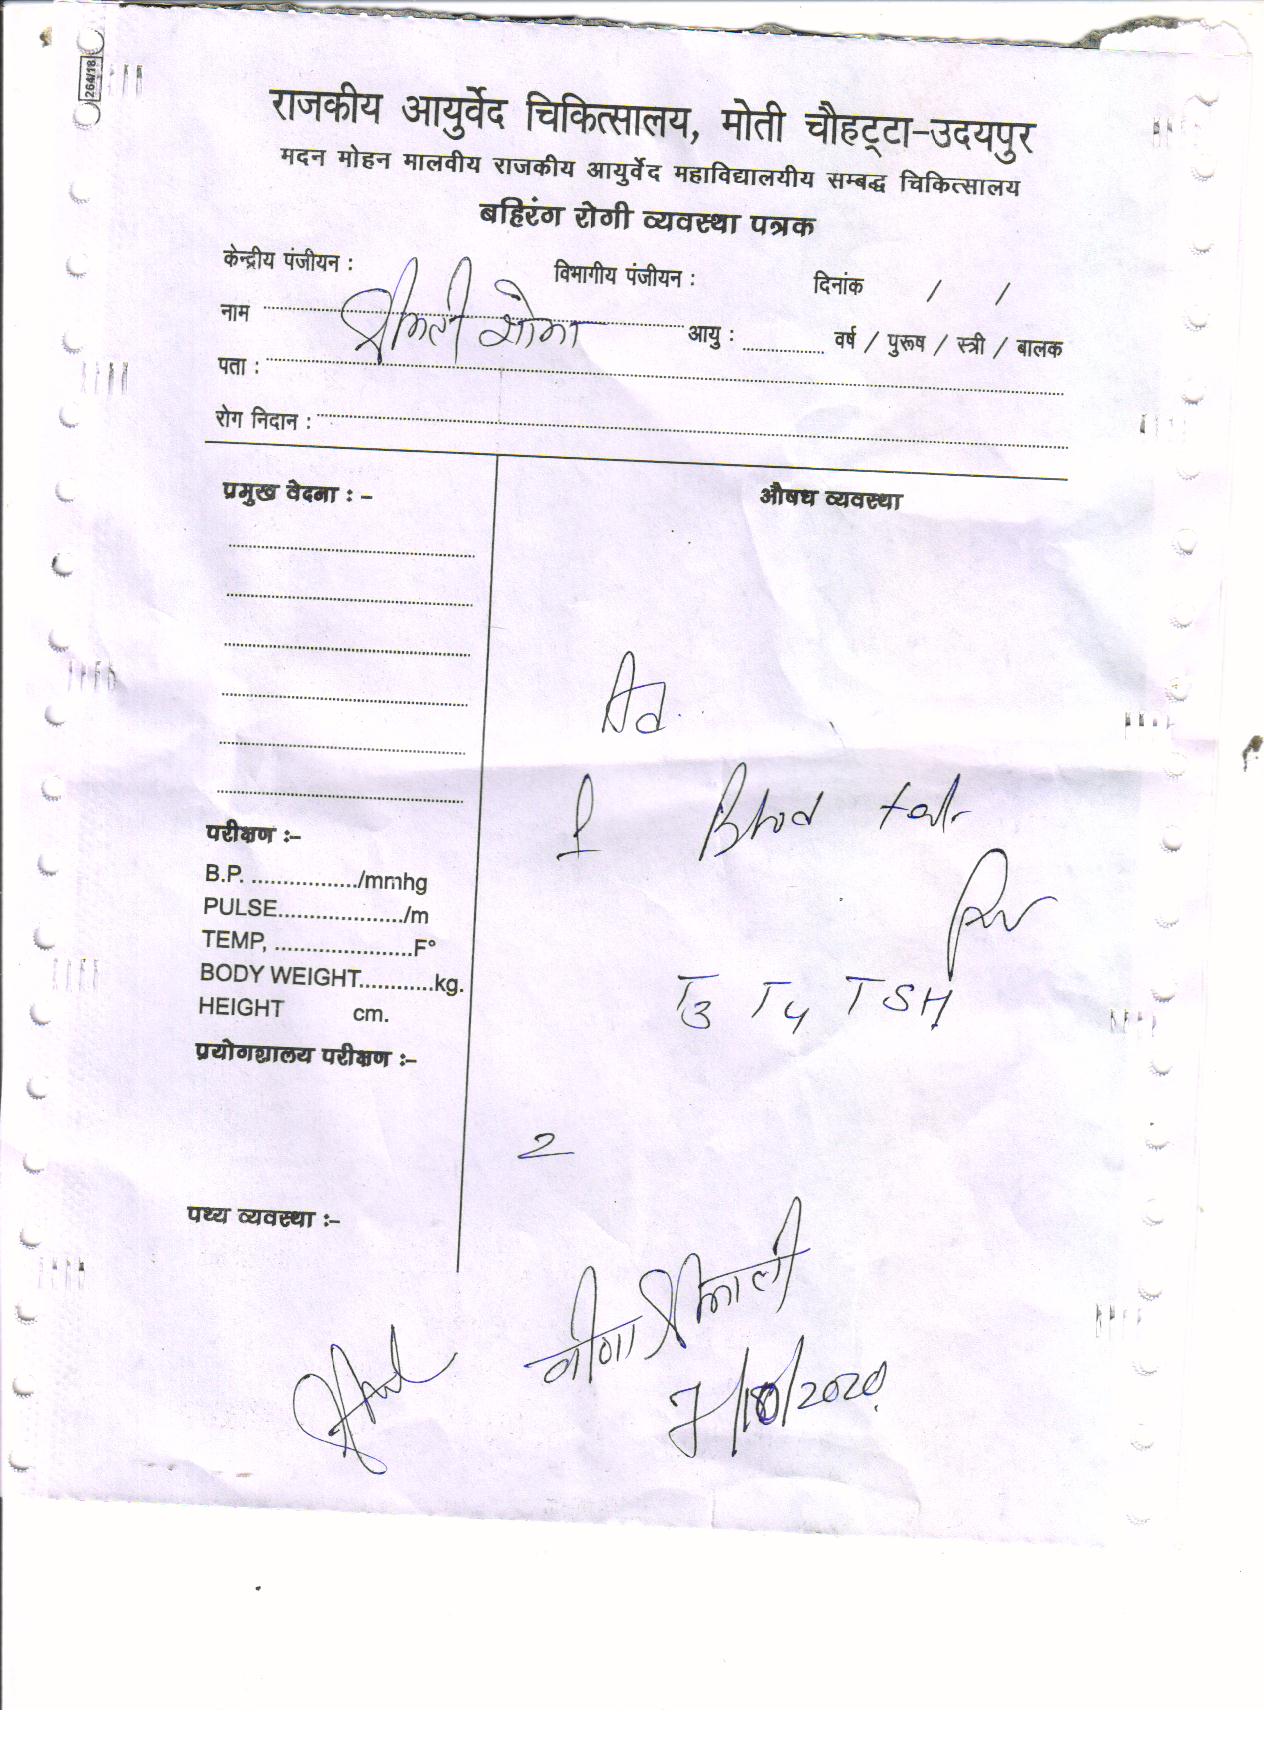 264/18
राजकीय आयुर्वेद चिकित्सालय, मोती चौहट्टा-उदयपुर
मदन मोहन मालवीय राजकीय आयुर्वेद महाविद्यालयीय सम्बद्ध चिकित्सालय
बहिरंग रोगी व्यवस्था पत्रक
केन्द्रीय पंजीयन : विभागीय पंजीयन : दिनांक / /
नाम श्रीमती आयु : वर्ष / पुरूष / स्त्री / बालक
पता :
रोग निदान :
प्रमुख वेदना : - औषध व्यवस्था
Ad.
1 Blood test
परीक्षण :-
B.P. ................./mmhg
PULSE..................../m
TEMP, ......................F°
BODY WEIGHT............kg.
T3 T4 TSH
HEIGHT cm.
प्रयोगशालय परीक्षण :-
2
पथ्य व्यवस्था :-
7/10/2020